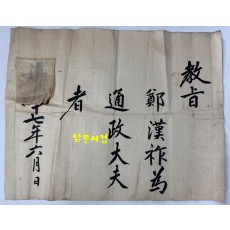 教旨
鄭漢祚爲
通政大夫
者
十七年六月日